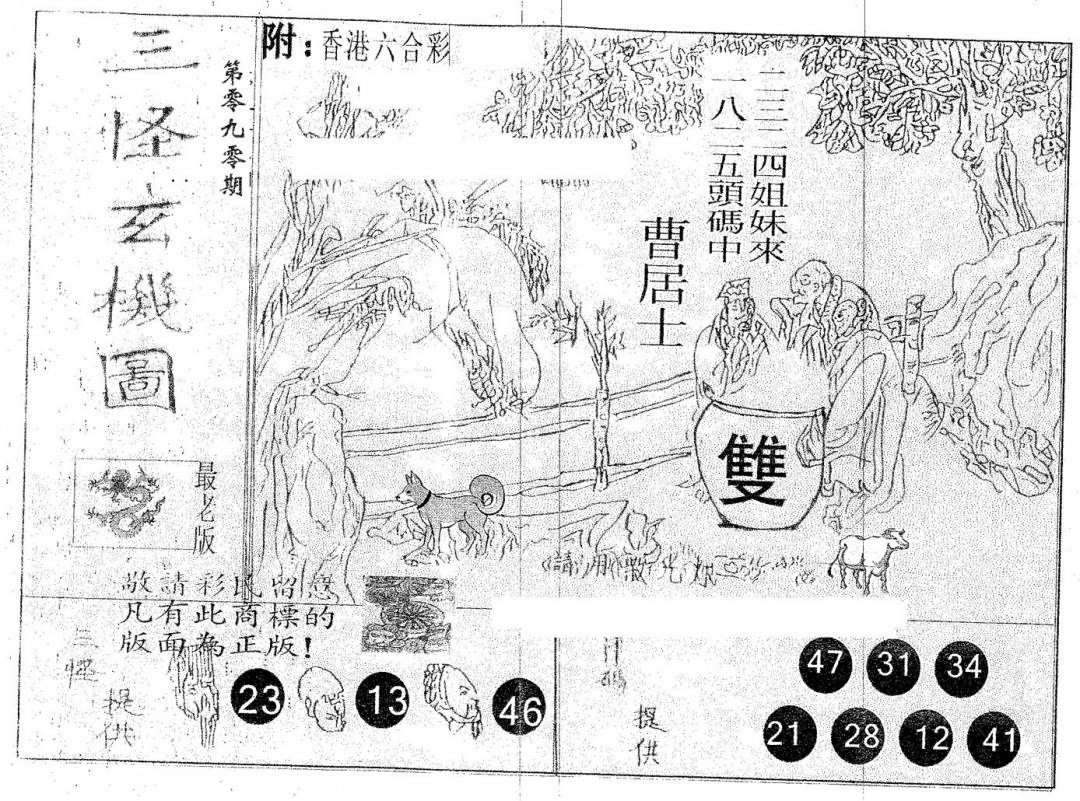 三怪玄機圖
第零九零期
附：香港六合彩
二三二四姐妹來
一八二五頭碼中
曹居士
雙
最老版
敬請彩民留意
凡有此商標的
版面為正版！
三怪
提供
23
13
46
提供
47 31 34
21 28 12 41